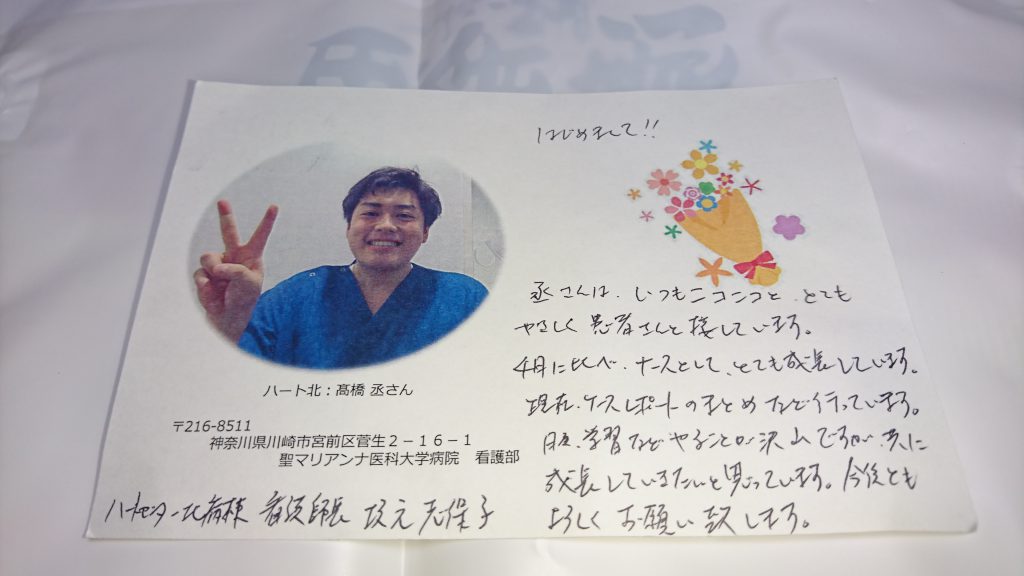 はじめまして!!
ハート北：髙橋 丞さん
〒216-8511
神奈川県川崎市宮前区菅生２－１６－１
聖マリアンナ医科大学病院　看護部
ハートセンター北病棟 看護師長 坂元 志保子
丞さんは、いつもニコニコと、とても
やさしく患者さんと接しています。
4月に比べ、ナースとして、とても成長しています。
現在、ケースレポートのまとめなど行っています。
学習などやることが沢山ですが、共に
成長していきたいと思っています。今後とも
よろしくお願い致します。